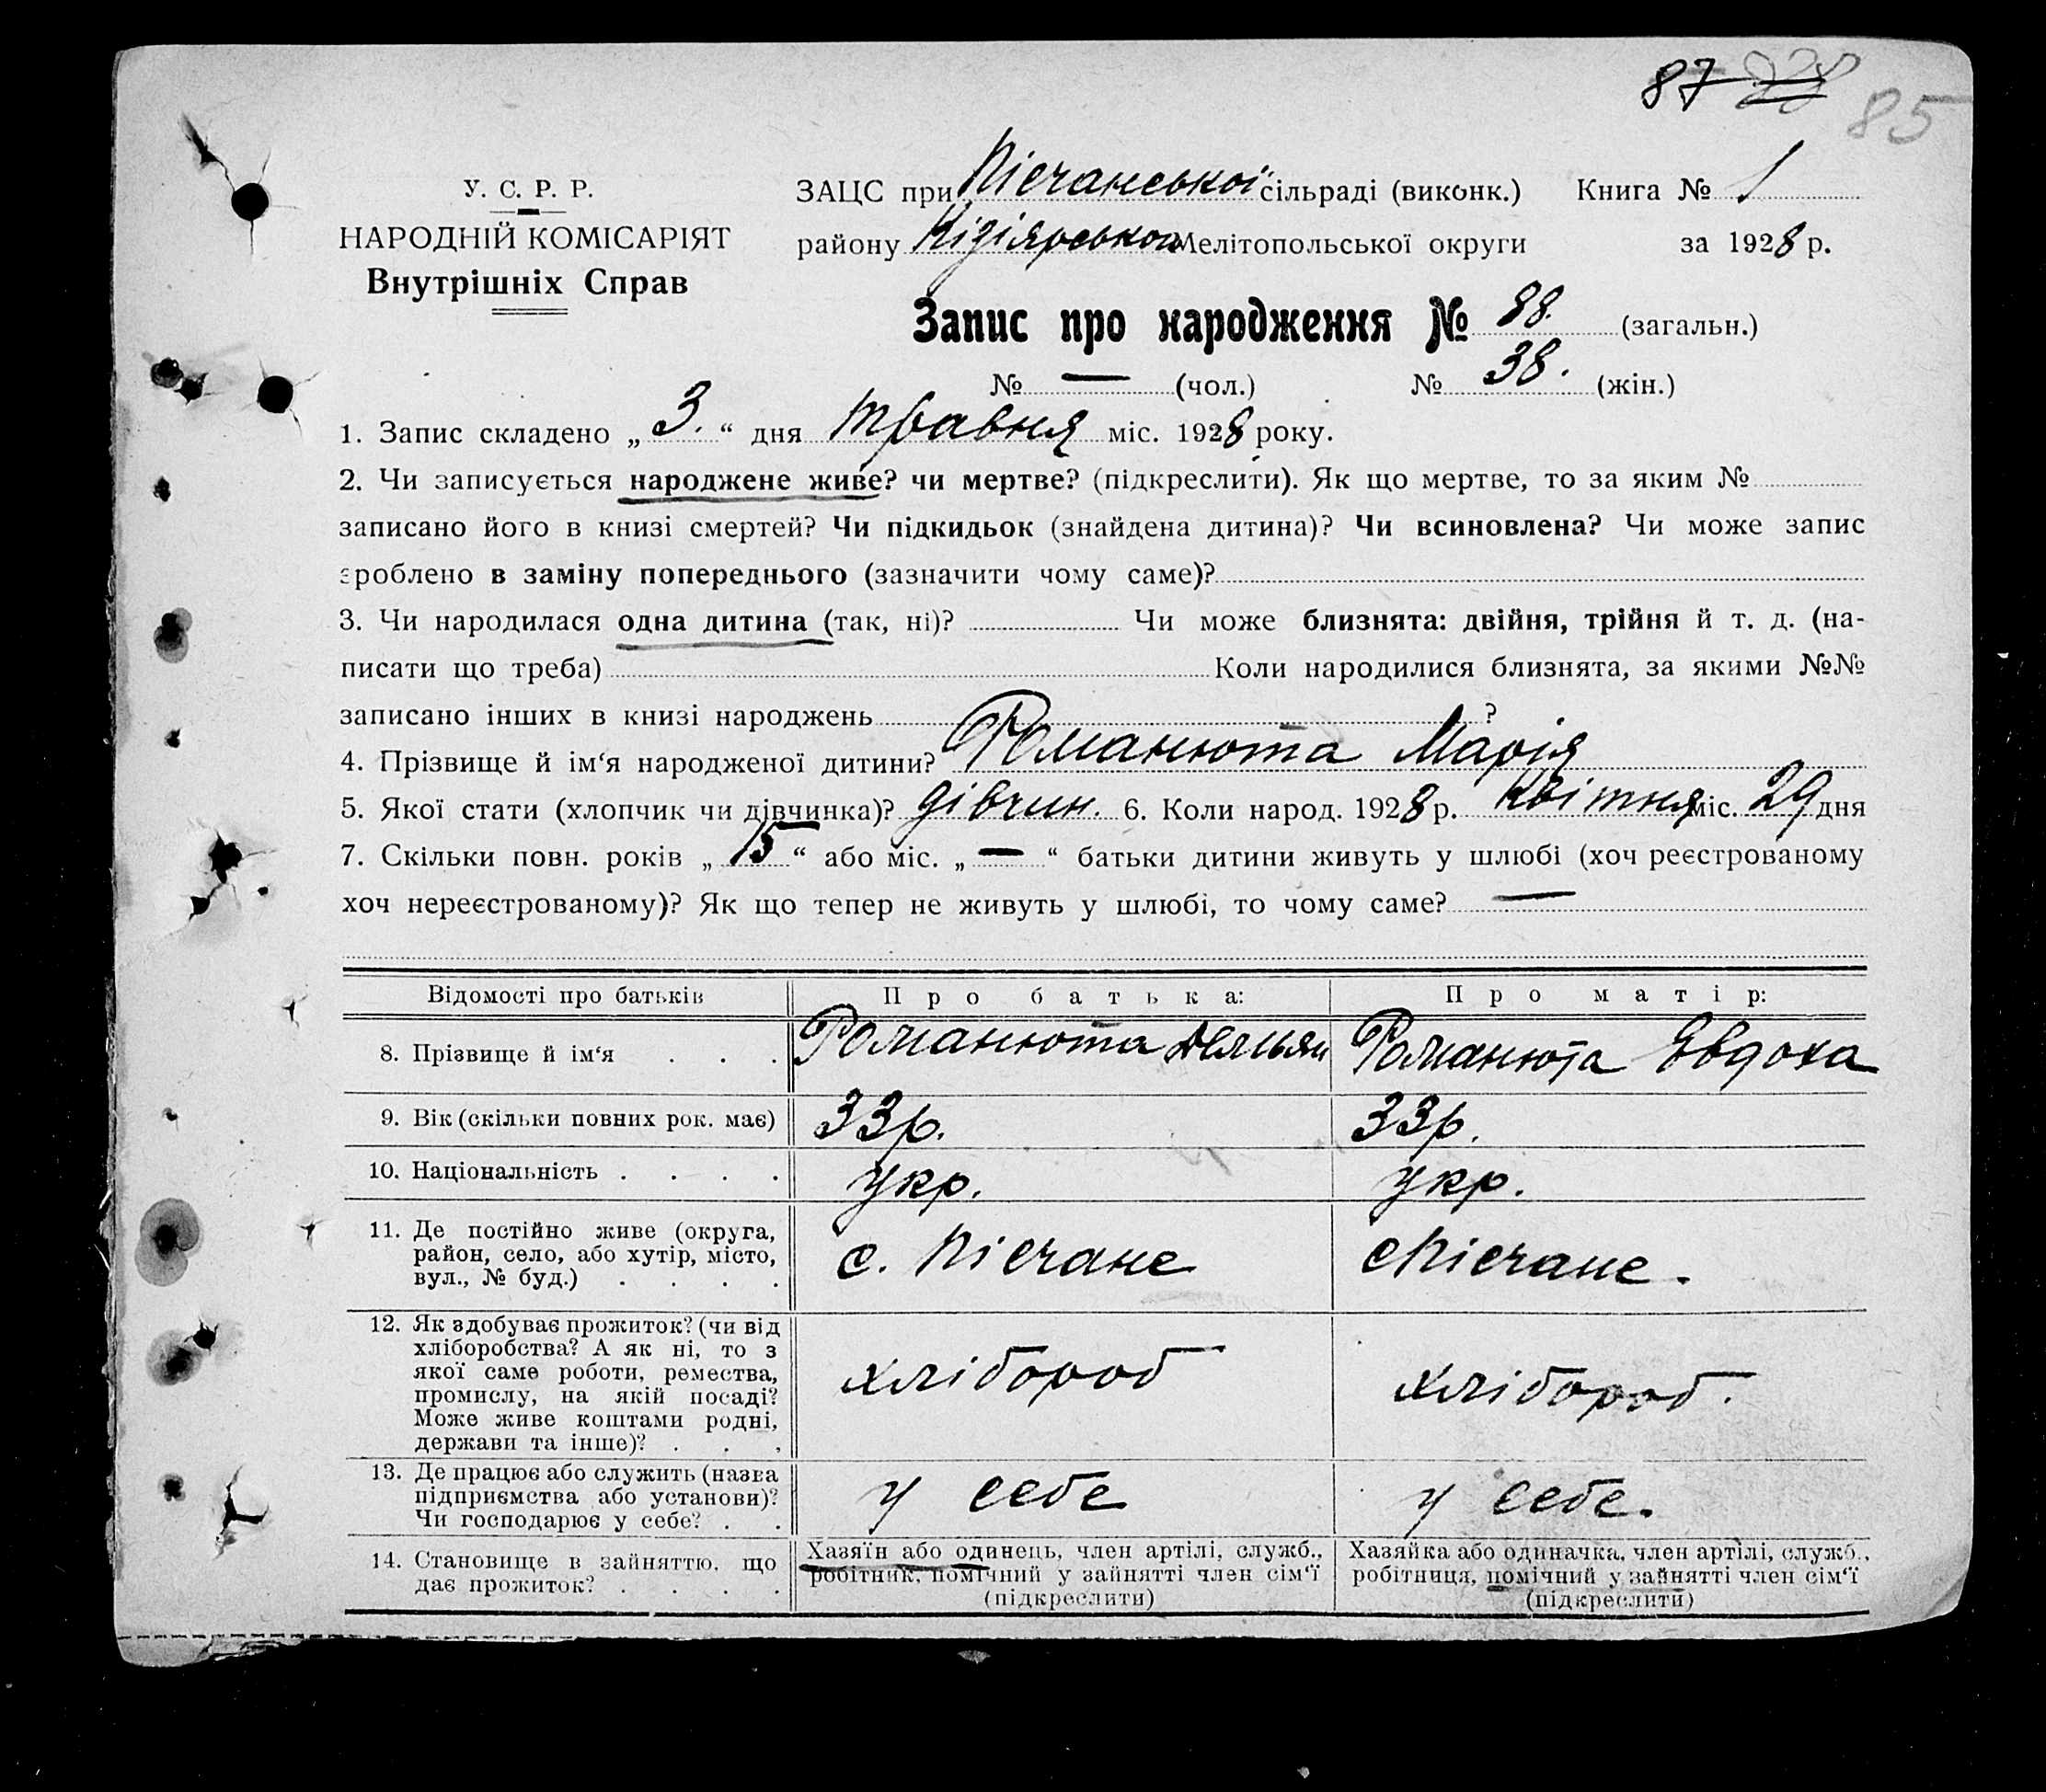 87 88 85
У. С. Р. Р.
НАРОДНІЙ КОМІСАРІЯТ
Внутрішніх Справ
ЗАЦС при Пісчанської сільраді (виконк.) Книга № 1
району Кізіярського Мелітопольської округи за 1928 р.
Запис про народження № 88. (загальн.)
№ — (чол.) № 38. (жін.)
1. Запис складено „ 3. “ дня травня міс. 1928 року.
2. Чи записується народжене живе? чи мертве? (підкреслити). Як що мертве, то за яким №
записано його в книзі смертей? Чи підкидьок (знайдена дитина)? Чи всиновлена? Чи може запис
зроблено в заміну попереднього (зазначити чому саме)?
3. Чи народилася одна дитина (так, ні)? Чи може близнята: двійня, трійня й т. д. (на-
писати що треба) Коли народилися близнята, за якими №№
записано інших в книзі народжень ?
4. Прізвище й ім‘я народженої дитини? Романюта Марія
5. Якої стати (хлопчик чи дівчинка)? дівчин. 6. Коли народ. 1928 р. квітня міс. 29 дня
7. Скільки повн. років „ 15 “ або міс. „ — “ батьки дитини живуть у шлюбі (хоч реєстрованому
хоч нереєстрованому)? Як що тепер не живуть у шлюбі, то чому саме? —
Відомості про батьків Про батька: Про матір:
8. Прізвище й ім‘я . . . Романюта Демьян Романюта Явдоха
9. Вік (скільки повних рок. має) 33 р. 33 р.
10. Національність . . . . укр. укр.
11. Де постійно живе (округа,
район, село, або хутір, місто,
вул., № буд.) . . . .
с. Пісчане с Пісчане.
12. Як здобуває прожиток? (чи від
хліборобства? А як ні, то з
якої саме роботи, ремества,
промислу, на якій посаді?
Може живе коштами родні,
держави та інше)? . . .
хлібороб хлібороб.
13. Де працює або служить (назва
підприємства або установи)?
Чи господарює у себе? . .
у себе у себе.
14. Становище в зайняттю, що
дає прожиток? . . . .
Хазяїн або одинець, член артілі, служб.,
робітник, помічний у зайнятті член сім‘ї
(підкреслити)
Хазяйка або одиначка, член артілі, служб.,
робітниця, помічний у зайнятті член сім‘ї
(підкреслити)